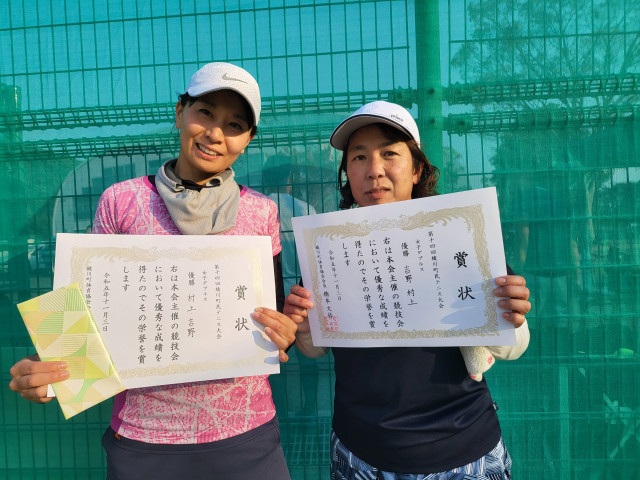 賞状
第十四回横川町民テニス大会
女子ダブルス
優勝 村上 吉野
右は本会主催の競技会
において優秀な成績を
得たのでその栄誉を賞
します
令和五年十一月三日
賞状
第十四回横川町民テニス大会
女子ダブルス
優勝 吉野 村上
右は本会主催の競技会
において優秀な成績を
得たのでその栄誉を賞
します
令和五年十一月三日